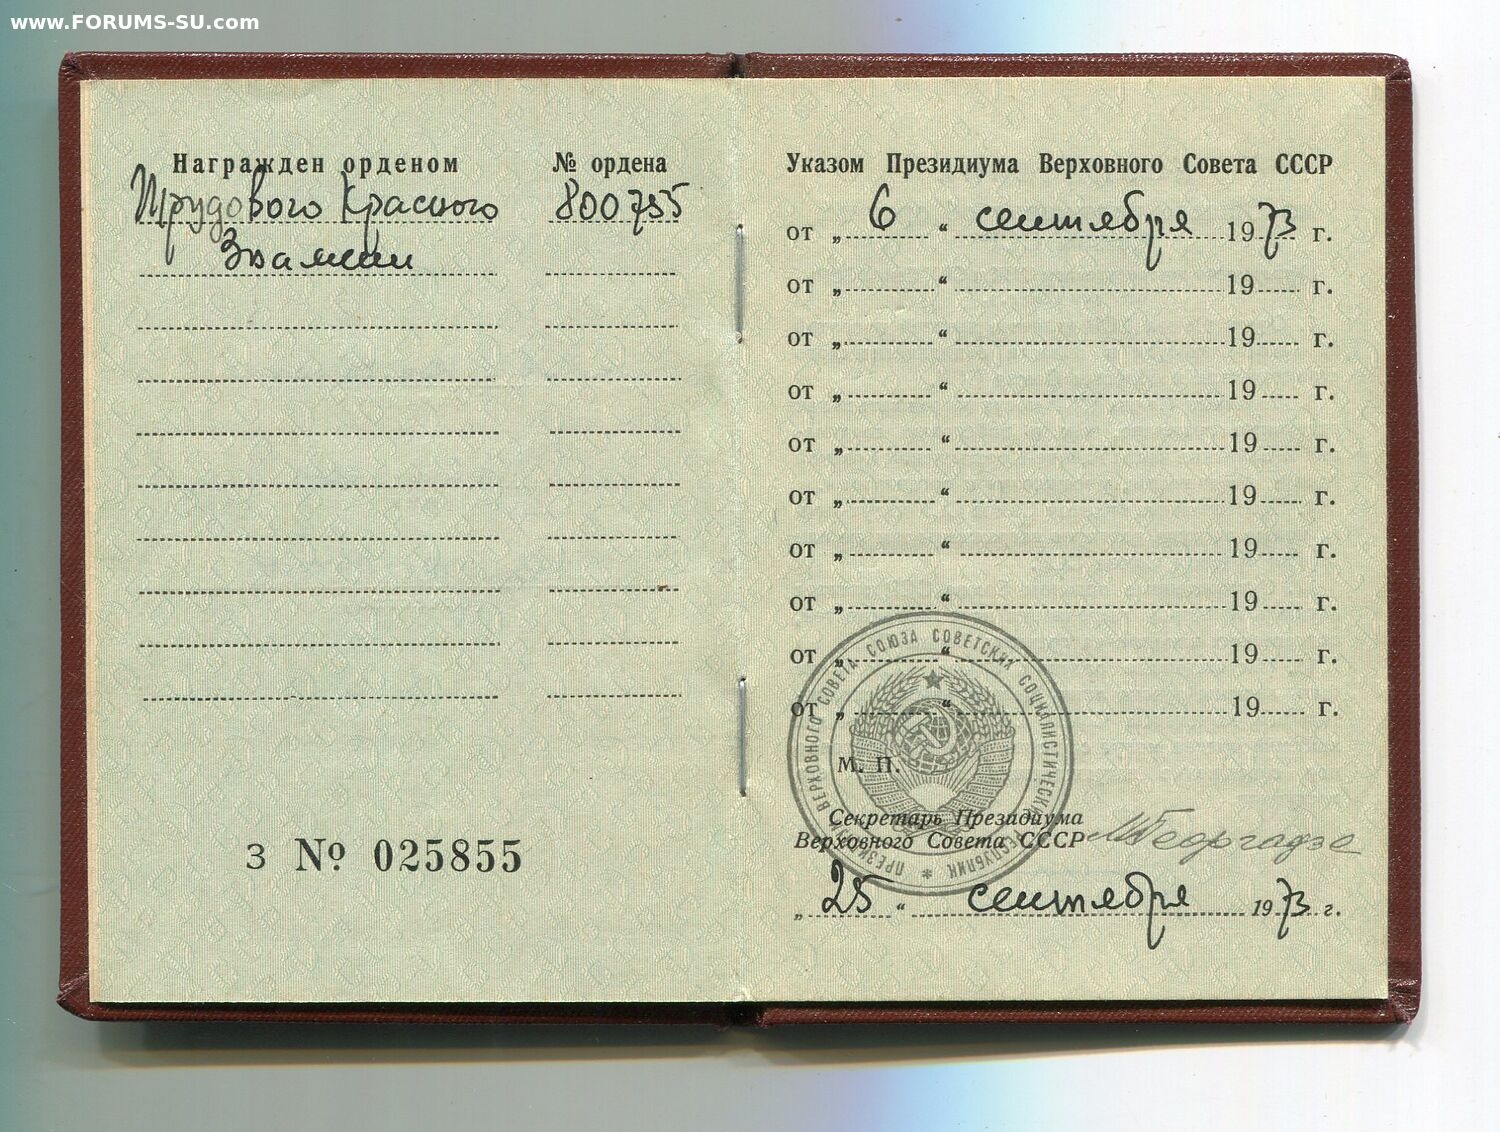 www.FORUMS-SU.com
Награжден орденом № ордена
Трудового Красного 800755
Знамени
З № 025855
Указом Президиума Верховного Совета СССР
от „ 6 “ сентября 1973 г.
от „ “ 19 г.
от „ “ 19 г.
от „ “ 19 г.
от „ “ 19 г.
от „ “ 19 г.
от „ “ 19 г.
от „ “ 19 г.
от „ “ 19 г.
от „ “ 19 г.
ПРЕЗИДИУМ ВЕРХОВНОГО СОВЕТА СОЮЗА СОВЕТСКИХ СОЦИАЛИСТИЧЕСКИХ РЕСПУБЛИК *
М. П.
Секретарь Президиума
Верховного Совета СССР МГеоргадзе
„ 25 “ сентября 1973 г.